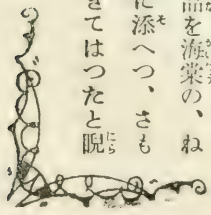 品を海棠の、ね
に添へつゝ、さも
きてはつたと睨